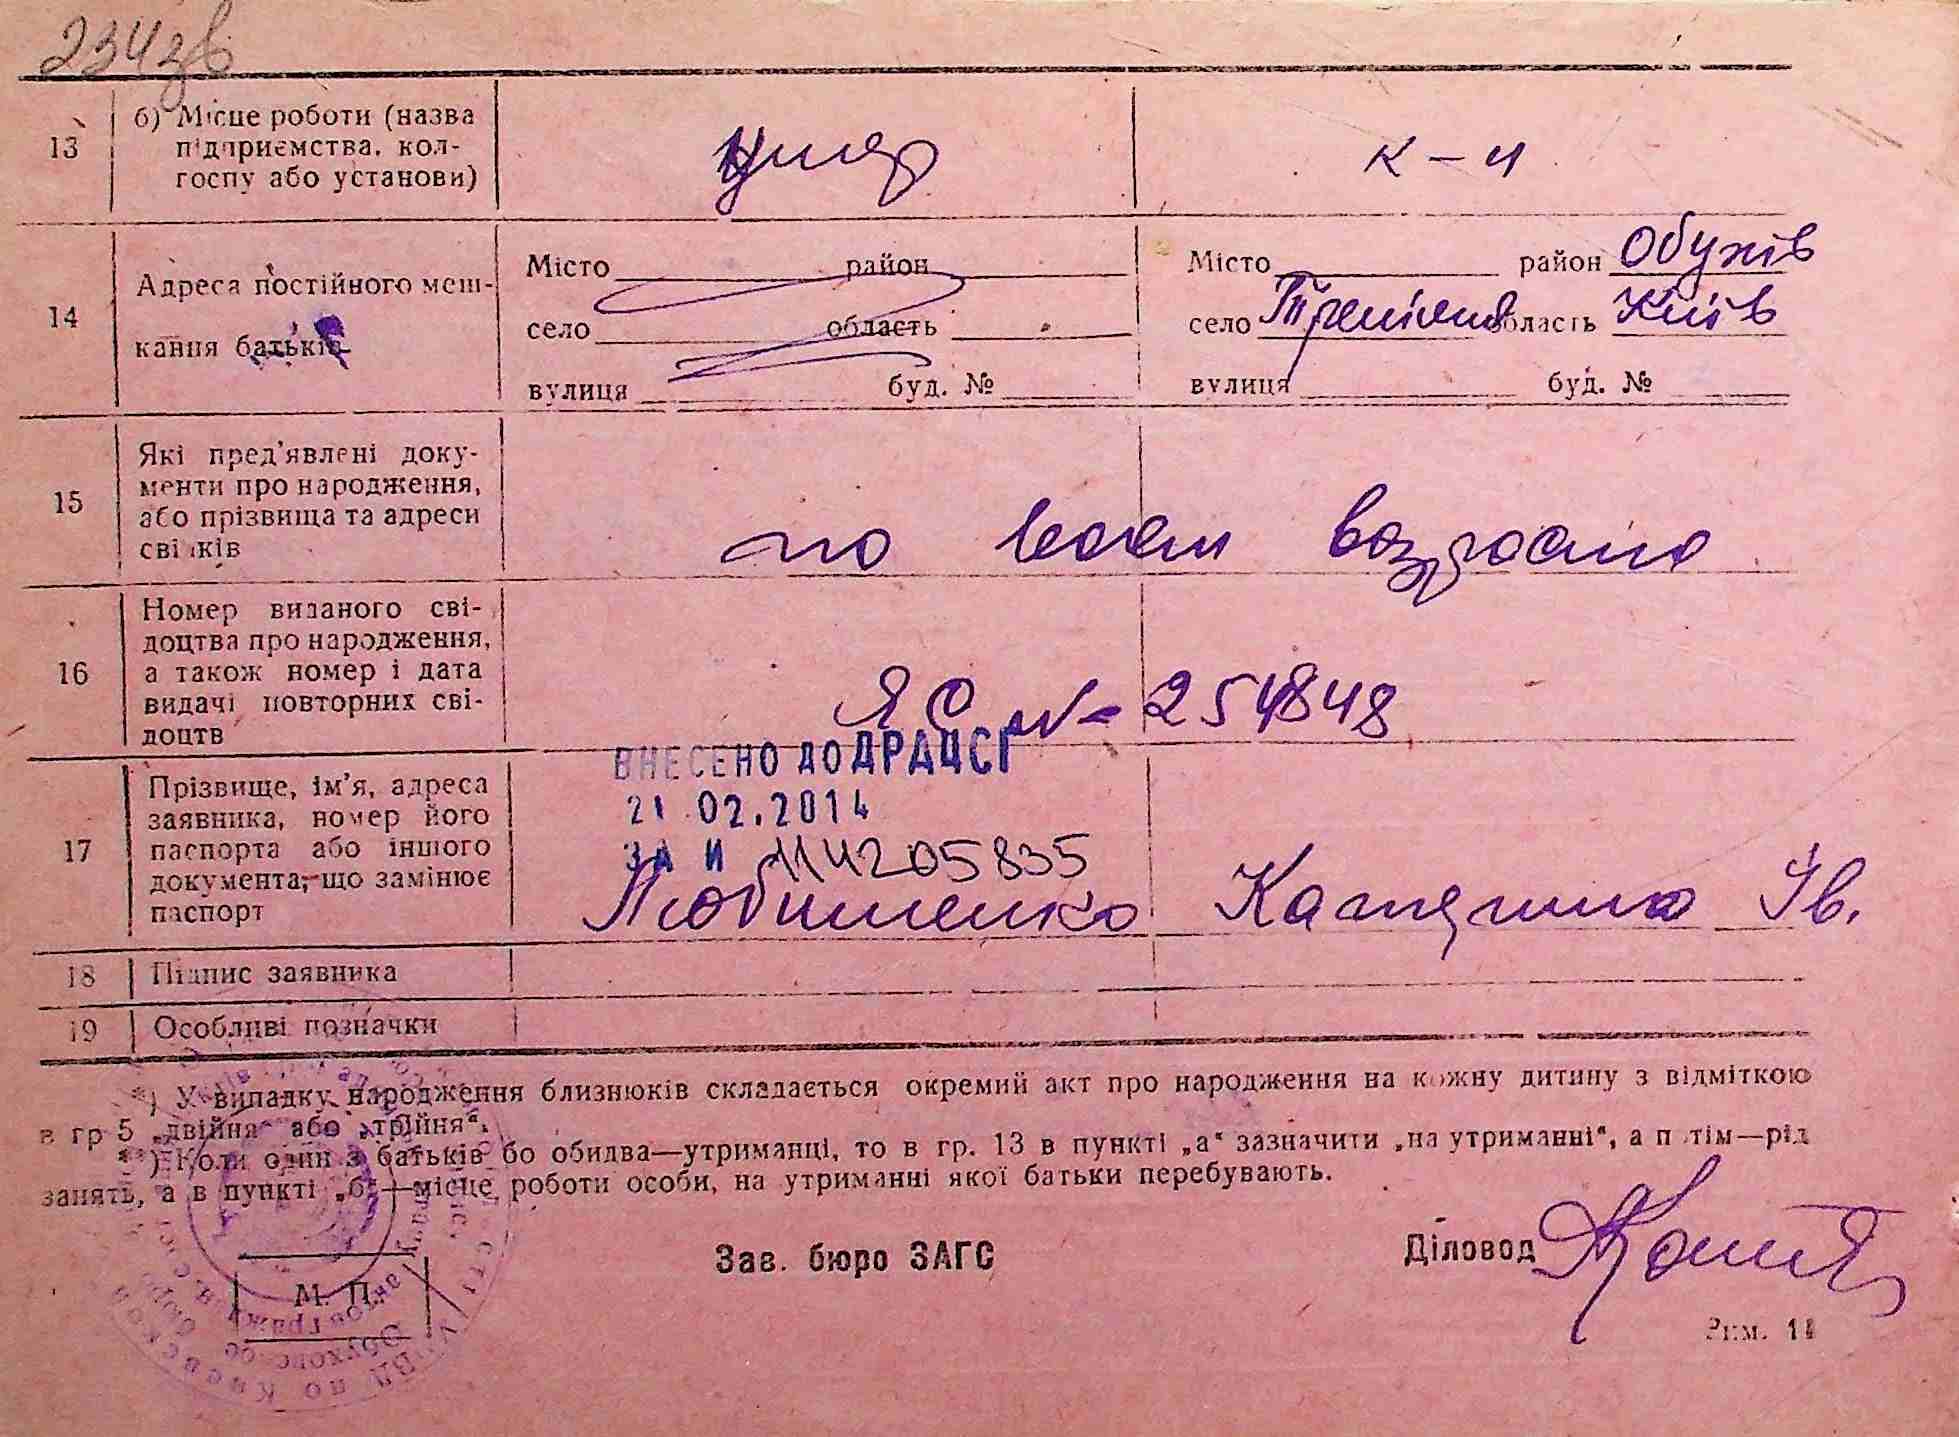 234зв
13
б) Місце роботи (назва
підприємства, кол-
госпу або установи)
к-ч
14
Адреса постійного меш-
кання батьків
Місто район
село область
вулиця буд. №
Місто район Обухів
село область Київ
вулиця буд. №
15
Які пред'явлені доку-
менти про народження,
або прізвища та адреси
свідків
по возрасту
16
Номер виданого сві-
доцтва про народження,
а також номер і дата
видачі повторних сві-
доцтв
ЯС № 254848
ВНЕСЕНО ДО ДРАЦСГ
21 02.2014
ЗА № 114205835
17
Прізвище, ім'я, адреса
заявника, номер його
паспорта або іншого
документа, що замінює
паспорт
Любименко Катерина Ів.
18
Підпис заявника
19
Особливі позначки
*) У випадку народження близнюків складається окремий акт про народження на кожну дитину з відміткою
в гр 5 „двійня" або „трійня".
**) Коли один з батьків бо обидва—утриманці, то в гр. 13 в пункті „а" зазначити „на утриманні", а потім—рід
занять, а в пункті „б"—місце роботи особи, на утриманні якої батьки перебувають.
Зав. бюро ЗАГС
Діловод
М. П.